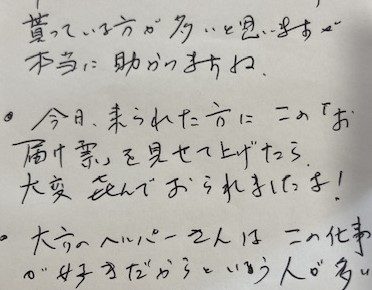 貰っている方が多いと思いますが
本当に助かりますね。
• 今日、来られた方に この「お
届け票」を見せて上げたら、
大変 喜んで おられましたよ！
• 大方のヘルパーさんは この仕事
が好きだからという人が多い